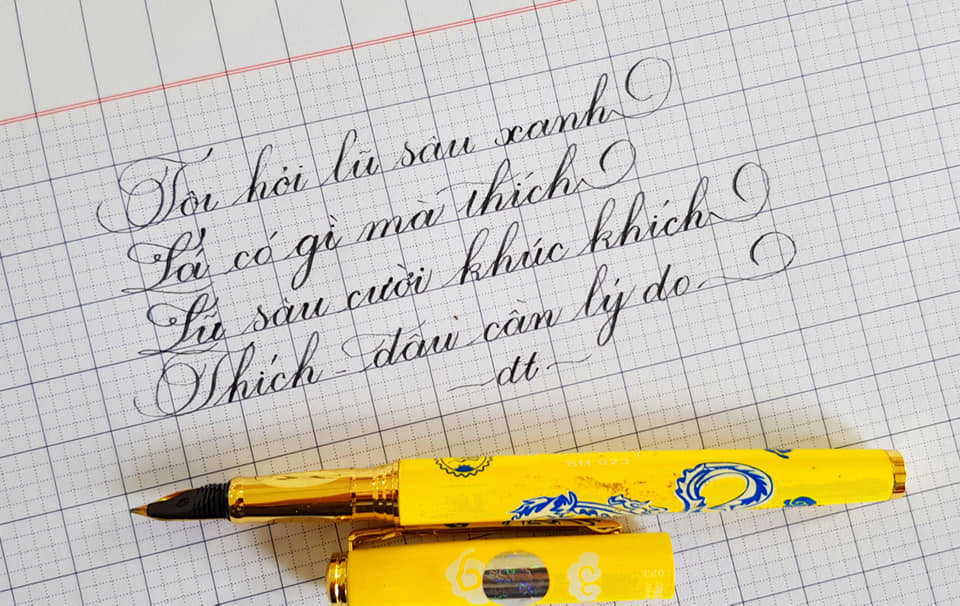 Tôi hỏi lũ sâu xanh
Lá có gì mà thích
Lũ sâu cười khúc khích
Thích - đâu cần lý do.
dt.
SH 023